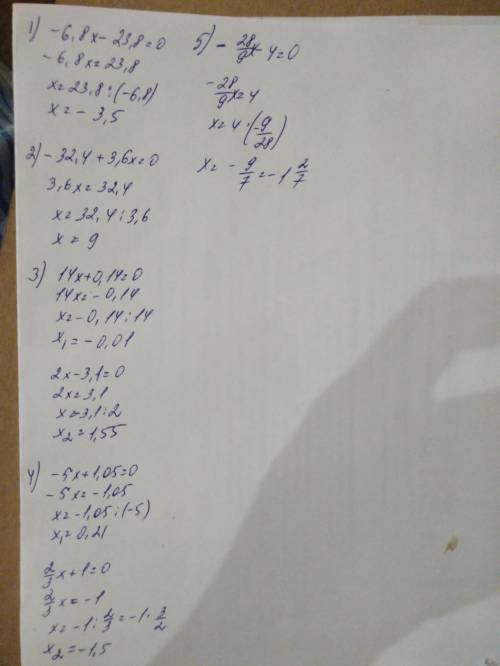 1) -6,8x-23,8=0
-6,8x=23,8
x=23,8:(-6,8)
x=-3,5
2) -32,4+3,6x=0
3,6x=32,4
x=32,4:3,6
x=9
3) 14x+0,14=0
14x=-0,14
x=-0,14:14
x₁=-0,01
2x-3,1=0
2x=3,1
x=3,1:2
x₂=1,55
4) -5x+1,05=0
-5x=-1,05
x=-1,05:(-5)
x₁=0,21
2/3x+1=0
2/3x=-1
x=-1:2/3=-1·3/2
x₂=-1,5
5) -28/9x-4=0
-28/9x=4
x=4·(-9/28)
x=-9/7=-1 2/7